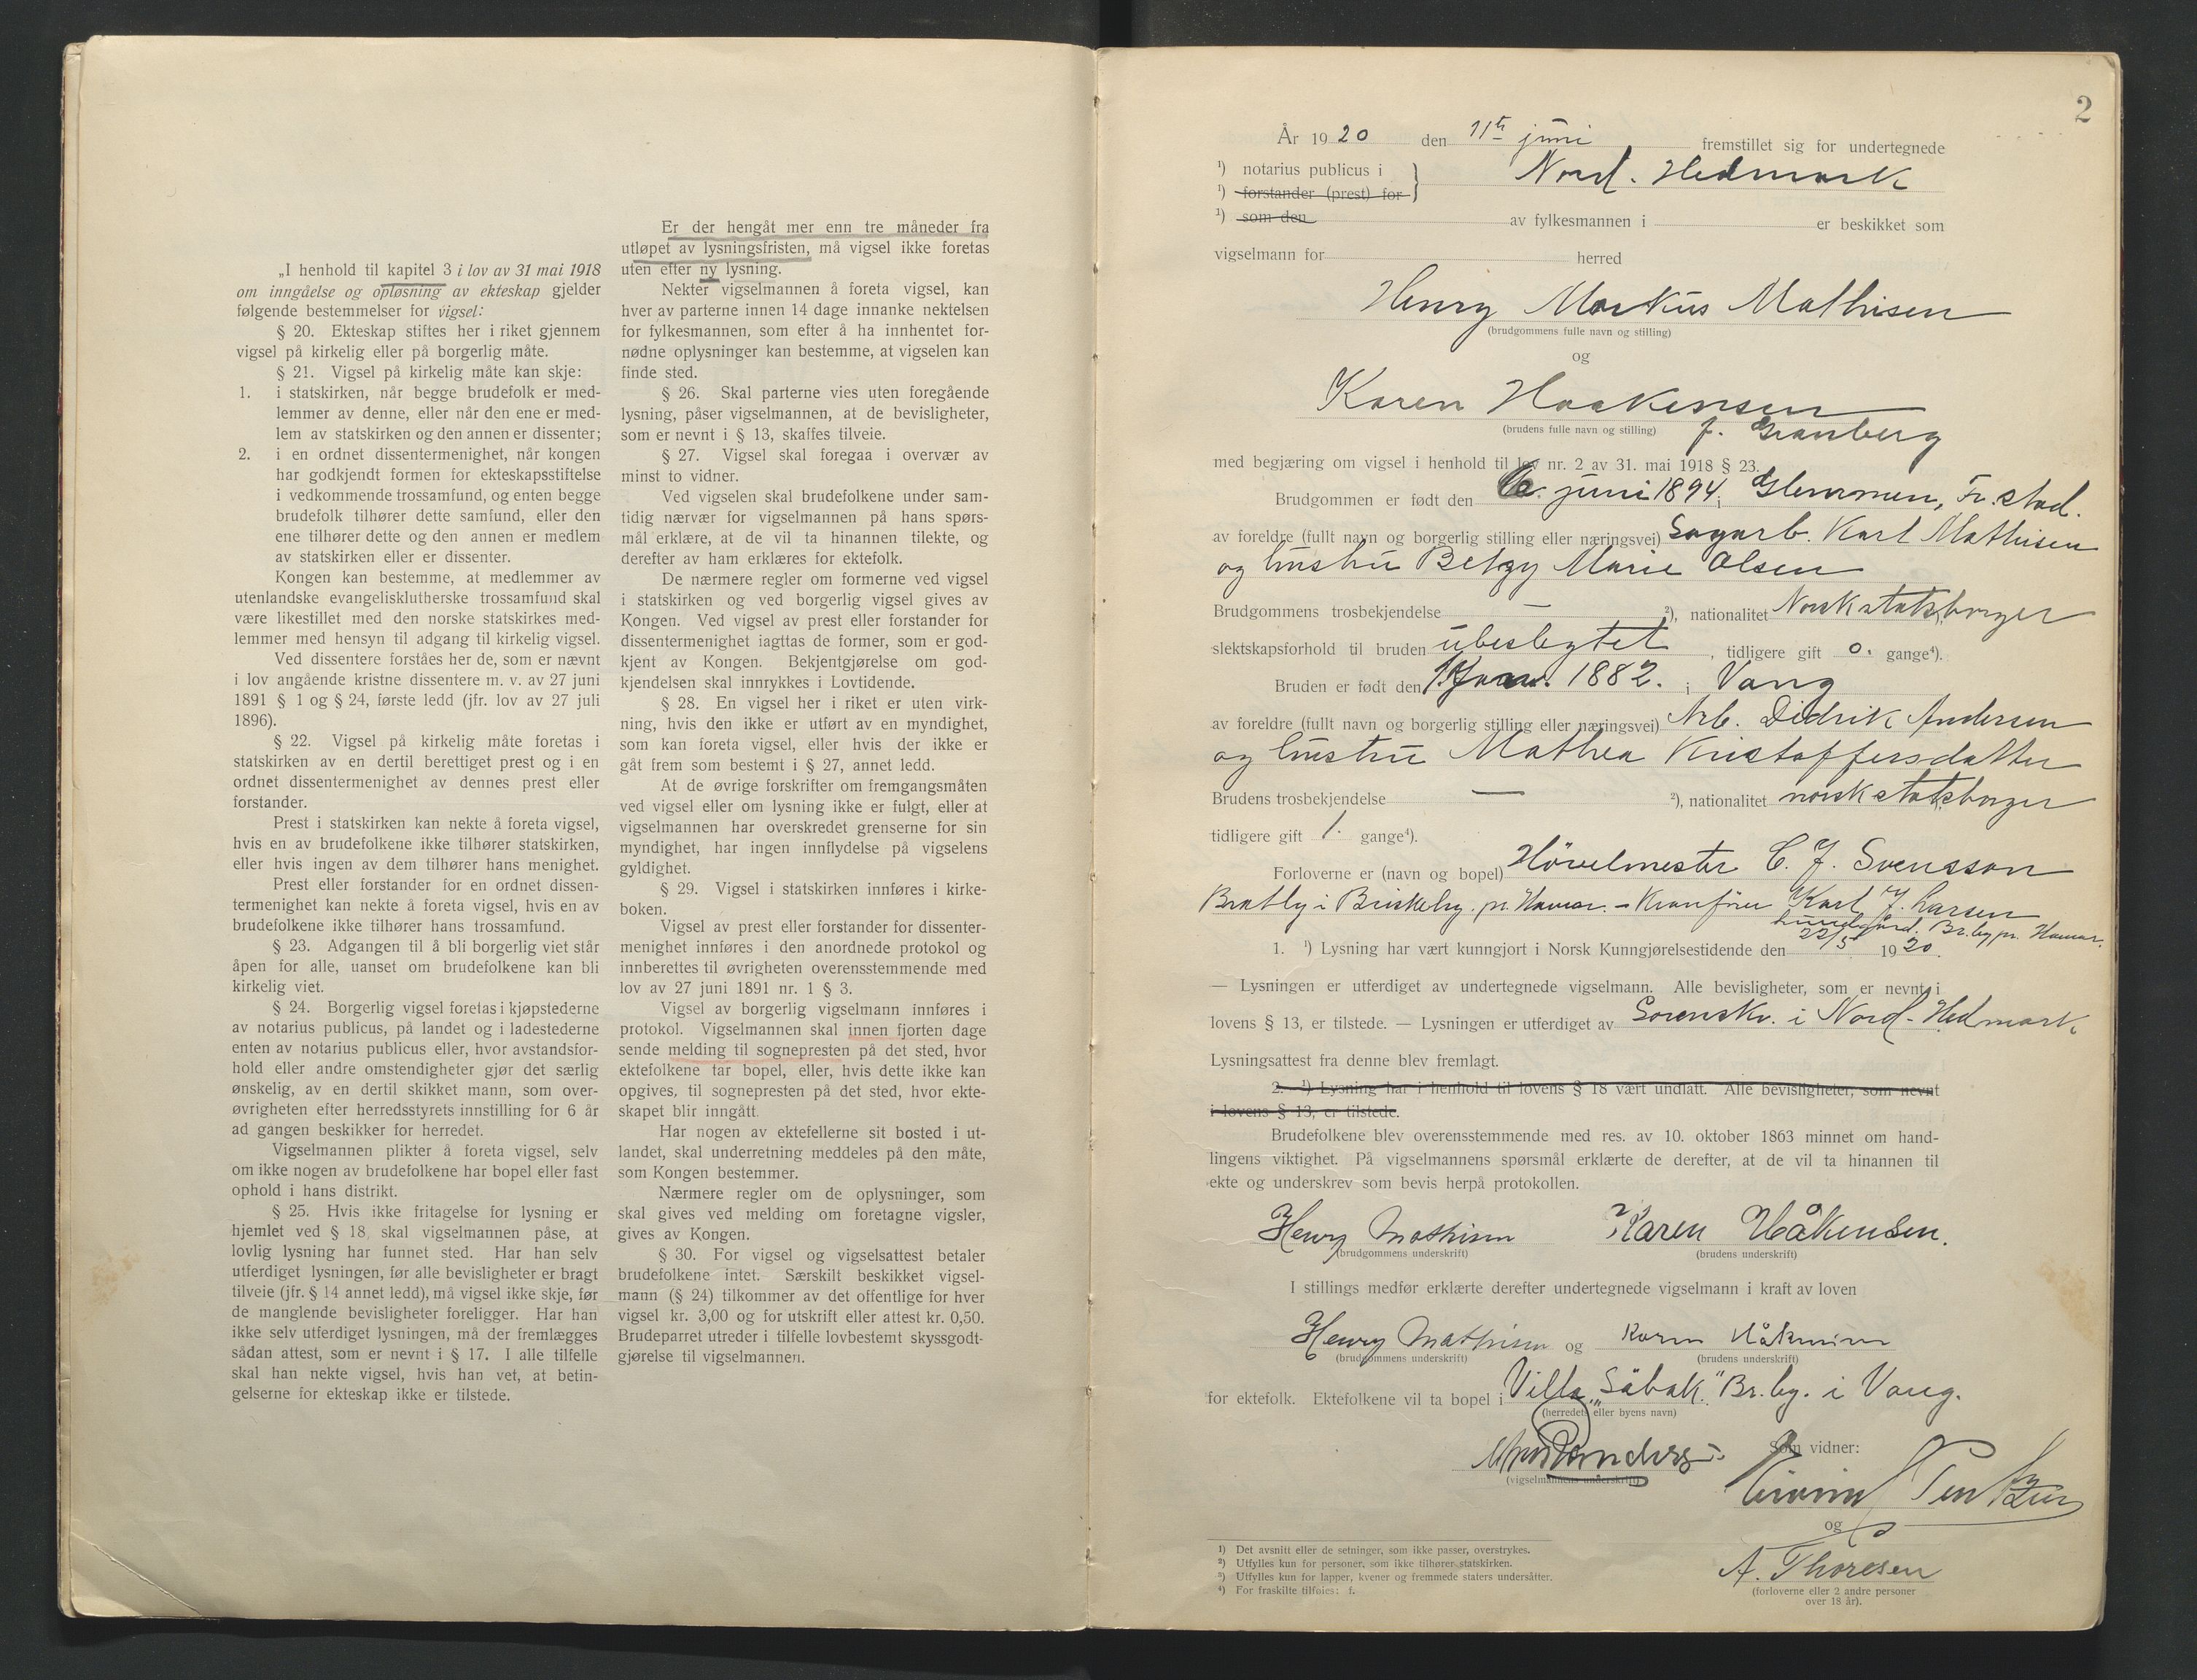 „I henhold til kapitel 3 i lov av 31 mai 1918
om inngåelse og opløsning av ekteskap gjelder
følgende bestemmelser for vigsel:
§ 20. Ekteskap stiftes her i riket gjennem
vigsel på kirkelig eller på borgerlig måte.
§ 21. Vigsel på kirkelig måte kan skje:
1. i statskirken, når begge brudefolk er med-
lemmer av denne, eller når den ene er med-
lem av statskirken og den annen er dissenter;
2. i en ordnet dissentermenighet, når kongen
har godkjendt formen for ekteskapsstiftelse
i vedkommende trossamfund, og enten begge
brudefolk tilhører dette samfund, eller den
ene tilhører dette og den annen er medlem
av statskirken eller er dissenter.
Kongen kan bestemme, at medlemmer av
utenlandske evangeliskluth­erske trossamfund skal
være likestillet med den norske statskirkes med-
lemmer med hensyn til adgang til kirkelig vigsel.
Ved dissentere forståes her de, som er nævnt
i lov angående kristne dissentere m. v. av 27 juni
1891 § 1 og § 24, første ledd (jfr. lov av 27 juli
1896).
§ 22. Vigsel på kirkelig måte foretas i
statskirken av en dertil berettiget prest og i en
ordnet dissentermenighet av dennes prest eller
forstander.
Prest i statskirken kan nekte å foreta vigsel,
hvis en av brudefolkene ikke tilhører statskirken,
eller hvis ingen av dem tilhører hans menighet.
Prest eller forstander for en ordnet dissen-
termenighet kan nekte å foreta vigsel, hvis en av
brudefolkene ikke tilhører hans trossamfund.
§ 23. Adgangen til å bli borgerlig viet står
åpen for alle, uanset om brudefolkene kan bli
kirkelig viet.
§ 24. Borgerlig vigsel foretas i kjøpstederne
av notarius publicus, på landet og i ladestederne
enten av notarius publicus eller, hvor avstandsfor-
hold eller andre omstendigheter gjør det særlig
ønskelig, av en dertil skikket mann, som over-
øvrigheten efter herredsstyrets innstilling for 6 år
ad gangen beskikker for herredet.
Vigselmannen plikter å foreta vigsel, selv
om ikke nogen av brudefolkene har bopel eller fast
ophold i hans distrikt.
§ 25. Hvis ikke fritagelse for lysning er
hjemlet ved § 18, skal vigselmannen påse, at
lovlig lysning har funnet sted. Har han selv
utferdiget lysningen, før alle bevisligheter er bragt
tilveie (jfr. § 14 annet ledd), må vigsel ikke skje, før
de manglende bevisligheter foreligger. Har han
ikke selv utferdiget lysningen, må der fremlægges
sådan attest, som er nevnt i § 17. I alle tilfelle
skal han nekte vigsel, hvis han vet, at betin-
gelserne for ekteskap ikke er tilstede.
Er der hengåt mer enn tre måneder fra
utløpet av lysningsfristen, må vigsel ikke foretas
uten efter ny lysning.
Nekter vigselmannen å foreta vigsel, kan
hver av parterne innen 14 dage innanke nektelsen
for fylkesmannen, som efter å ha innhentet for-
nødne oplysninger kan bestemme, at vigselen kan
finde sted.
§ 26. Skal parterne vies uten foregående
lysning, påser vigselmannen, at de bevisligheter,
som er nevnt i § 13, skaffes tilveie.
§ 27. Vigsel skal foregaa i overvær av
minst to vidner.
Ved vigselen skal brudefolkene under sam-
tidig nærvær for vigselmannen på hans spørs-
mål erklære, at de vil ta hinannen tilekte, og
derefter av ham erklæres for ektefolk.
De nærmere regler om formerne ved vigsel
i statskirken og ved borgerlig vigsel gives av
Kongen. Ved vigsel av prest eller forstander for
dissentermenighet iagttas de former, som er god-
kjent av Kongen. Bekjentgjørelse om god-
kjendelsen skal innrykkes i Lovtidende.
§ 28. En vigsel her i riket er uten virk-
ning, hvis den ikke er utført av en myndighet,
som kan foreta vigsel, eller hvis der ikke er
gåt frem som bestemt i § 27, annet ledd.
At de øvrige forskrifter om fremgangsmåten
ved vigsel eller om lysning ikke er fulgt, eller at
vigselmannen har overskredet grenserne for sin
myndighet, har ingen innflydelse på vigselens
gyldighet.
§ 29. Vigsel i statskirken innføres i kirke-
boken.
Vigsel av prest eller forstander for dissenter-
menighet innføres i den anordnede protokol og
innberettes til øvrigheten overensstemmende med
lov av 27 juni 1891 nr. 1 § 3.
Vigsel av borgerlig vigselmann innføres i
protokol. Vigselmannen skal innen fjorten dage
sende melding til sognepresten på det sted, hvor
ektefolkene tar bopel, eller, hvis dette ikke kan
opgives, til sognepresten på det sted, hvor ekte-
skapet blir inngått.
Har nogen av ektefellerne sit bosted i ut-
landet, skal underretning meddeles på den måte,
som Kongen bestemmer.
Nærmere regler om de oplysninger, som
skal gives ved melding om foretagne vigsler,
gives av Kongen.
§ 30. For vigsel og vigselsattest betaler
brudefolkene intet. Særskilt beskikket vigsel-
mann (§ 24) tilkommer av det offentlige for hver
vigsel kr. 3,00 og for utskrift eller attest kr. 0,50.
Brudeparret utreder i tilfelle lovbestemt skyssgodt-
gjørelse til vigselmannen.
2
År 1920 den 11te juni fremstillet sig for undertegnede
¹) notarius publicus i } Nord. Hedmark
¹) forstander (prest) for
¹) som den av fylkesmannen i er beskikket som
vigselmann for herred
Henry Markus Mathisen
(brudgommens fulle navn og stilling)
og
Karen Haakensen
(brudens fulle navn og stilling) f. Granberg
med begjæring om vigsel i henhold til lov nr. 2 av 31. mai 1918 § 23.
Brudgommen er født den juni 1894 i Glemmen, Fr.stad.
av foreldre (fullt navn og borgerlig stilling eller næringsvei) Sagarb. Karl Mathisen
og hustru Betzy Marie Olsen
Brudgommens trosbekjendelse — ²), nationalitet Norsk statsborger
slektskapsforhold til bruden ubeslegtet, tidligere gift 0. gange⁴).
Bruden er født den 1882. i Vang
av foreldre (fullt navn og borgerlig stilling eller næringsvei) Arb. Didrik Andersen
og hustru Mathea Kristoffersdatter
Brudens trosbekjendelse — ²), nationalitet norsk statsborger
tidligere gift 1. gange⁴).
Forloverne er (navn og bopel) Hövelmester C. J. Svensson
Bratly i Briskeby. pr. Hamar. – Kranfører Karl J. Larsen
Lundgård. Br.by pr. Hamar.
1. ¹) Lysning har vært kunngjort i Norsk Kunngjørelsestidende den 22/5 1920.
— Lysningen er utferdiget av undertegnede vigselmann. Alle bevisligheter, som er nevnt i
lovens § 13, er tilstede. — Lysningen er utferdiget av Sorenskr. i Nord-Hedmark.
Lysningsattest fra denne blev fremlagt.
2. ¹) Lysning har i henhold til lovens § 18 vært undlatt. Alle bevisligheter, som nevnt
i lovens § 13, er tilstede.
Brudefolkene blev overensstemmende med res. av 10. oktober 1863 minnet om hand-
lingens viktighet. På vigselmannens spørsmål erklærte de derefter, at de vil ta hinannen til
ekte og underskrev som bevis herpå protokollen.
Henry Mathisen Karen Håkensen.
(brudgommens underskrift) (brudens underskrift)
I stillings medfør erklærte derefter undertegnede vigselmann i kraft av loven
Henry Mathisen og Karen Håkensen
(brudgommens underskrift) (brudens underskrift)
for ektefolk. Ektefolkene vil ta bopel i Villa „Säbak." Br.by. i Vang.
(herredets eller byens navn)
Som vidner:
(vigselmannens underskrift)
og
A. Thoresen
(forloverne eller 2 andre personer
over 18 år).
¹) Det avsnitt eller de setninger, som ikke passer, overstrykes.
²) Utfylles kun for personer, som ikke tilhører statskirken.
³) Utfylles kun for lapper, kvener og fremmede staters undersåtter.
⁴) For fraskilte tilføies: f.